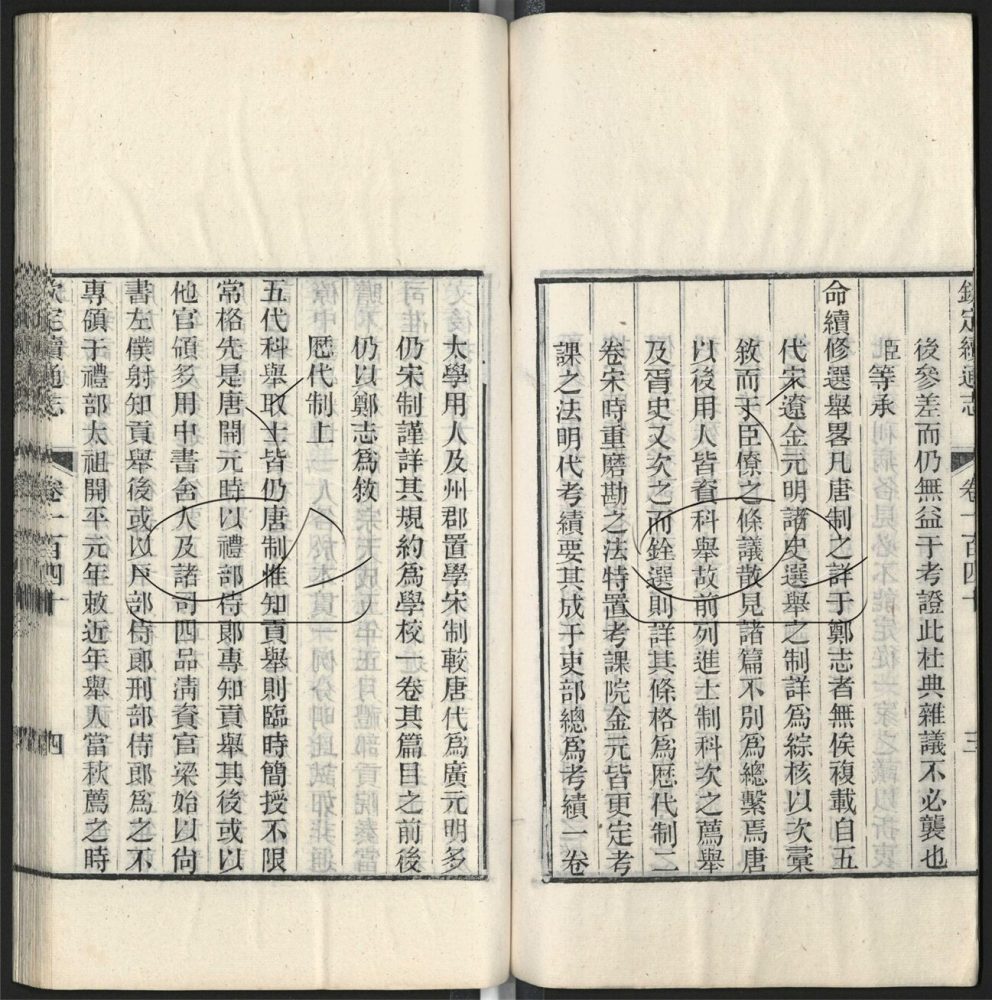 欽定續通志 卷一百四十 三
後參差而仍無益于考證此杜典雜議不必襲也
臣等承
命續修選舉畧凡唐制之詳于鄭志者無俟複載自五
代宋遼金元明諸史選舉之制詳爲綜核以次彙
敘而于臣僚之條議散見諸篇不別爲總繫焉唐
以後用人皆資科舉故前列進士制科次之薦舉
及胥史又次之而銓選則詳其條格爲歷代制二
卷宋時重磨勘之法特置考課院金元皆更定考
課之法明代考績要其成于吏部總爲考績一卷
太學用人及州郡置學宋制較唐代爲廣元明多
仍宋制謹詳其規約爲學校一卷其篇目之前後
仍以鄭志爲敘
歷代制上
五代科舉取士皆仍唐制惟知貢舉則臨時簡授不限
常格先是唐開元時以禮部侍郞專知貢舉其後或以
他官領多用中書舍人及諸司四品淸資官梁始以尙
書左僕射知貢舉後或以戶部侍郞刑部侍郞爲之不
專領于禮部太祖開平元年敕近年舉人當秋薦之時
欽定續通志 卷一百四十 四